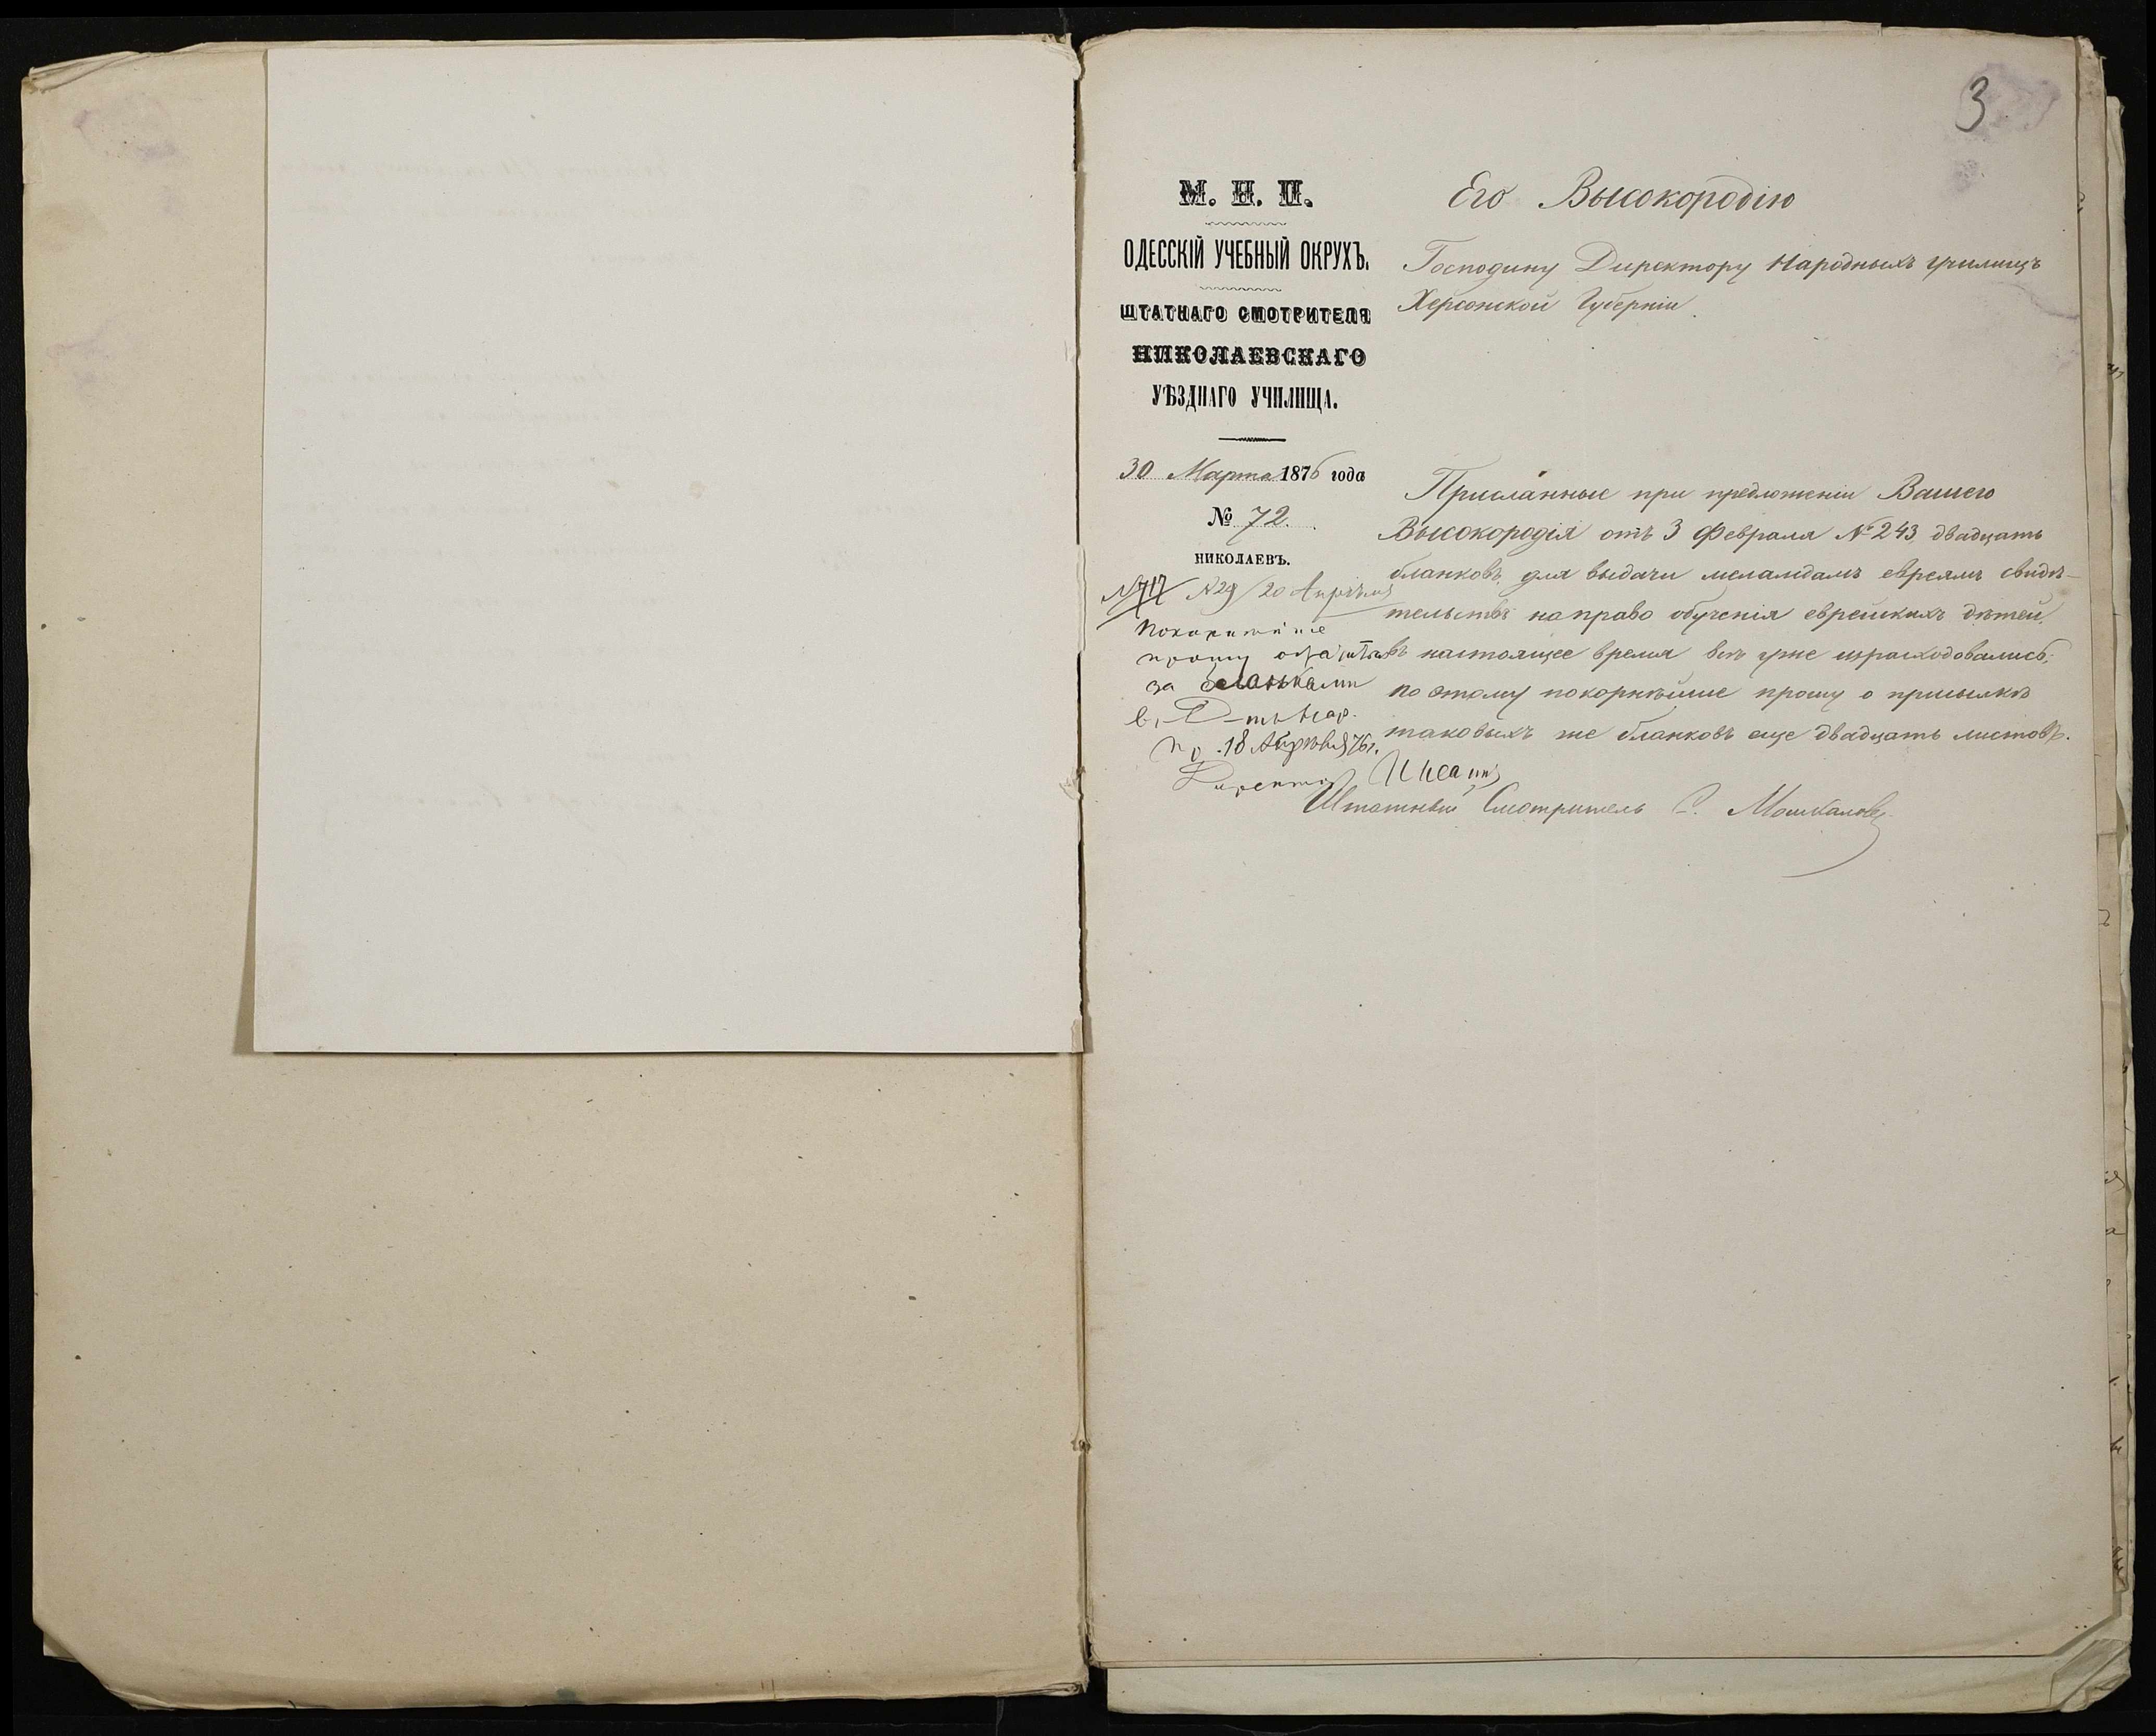 3
М. Н. П.
ОДЕССКІЙ УЧЕБНЫЙ ОКРУХЪ.
ШТАТНАГО СМОТРИТЕЛЯ
НИКОЛАЕВСКАГО
УѢЗДНАГО УЧИЛИЩА.
30 Марта 1876 года
№ 72.
НИКОЛАЕВЪ.
№ 717 № 29 / 20 Апрѣля
Покорнѣйше
прошу обратиться
за бланками
въ Д-тъ Нар.
Пр. 18 Апрѣля 76 г.
Директоръ
Его Высокородію
Господину Директору Народныхъ Училищъ
Херсонской Губерніи.
Присланные при предложеніи Вашего
Высокородія отъ 3 Февраля № 243, двадцать
бланковъ, для выдачи меламдамъ евреямъ свидѣ-
тельствъ на право обученія еврейскихъ дѣтей,
въ настоящее время всѣ уже израсходовались;
по этому покорнѣйше прошу о присылкѣ
таковыхъ же бланковъ еще двадцать листовъ.
Штатный Смотритель С.